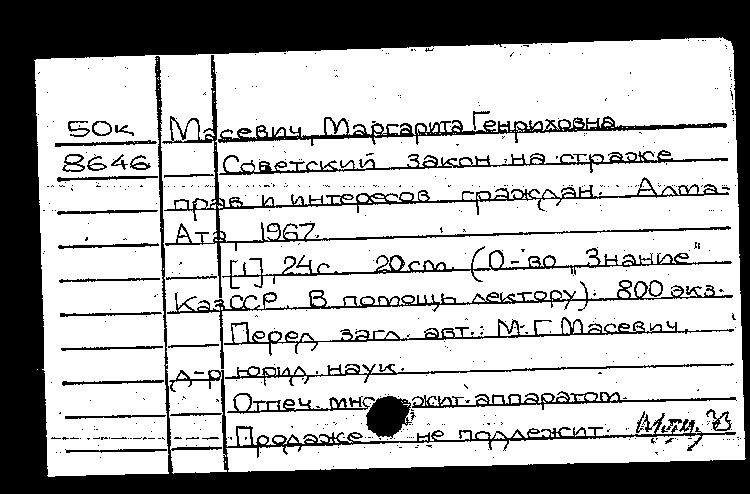 50к Масевич, Маргарита Генриховна.
8646 Советский закон на страже
прав и интересов граждан. Алма-
Ата, 1967.
[1], 24с. 20см. (О-во „Знание"
КазССР. В помощь лектору). 800 экз.
Перед загл. авт.: М.Г. Масевич,
д-р юрид. наук.
Отпеч. аппаратом.
Продаже не подлежит.